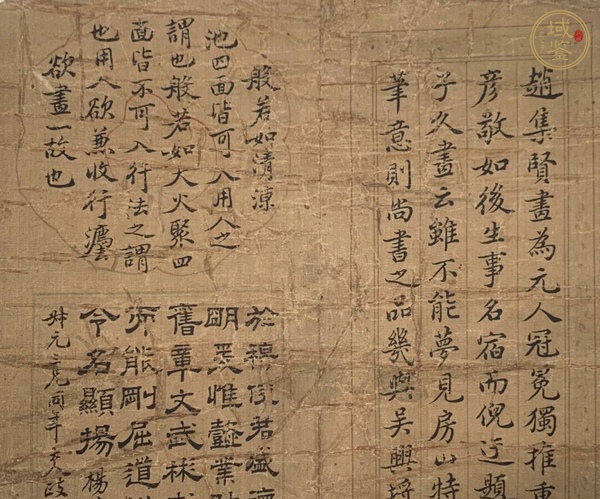 趙集賢畫為元人冠冕獨推重
彥敬如後生事名宿而倪迂題
子久畫云雖不能夢見房山特
筆意則尚書之品幾與吳興埒
般若如清涼
池四面皆可入用人之
謂也般若如大火聚四
面皆不可入行法之謂
也用人欲兼收行灋
欲畫一故也
於穆
明 惟懿業
舊章文武
能剛屈道
令名顯揚 楊
域鉴